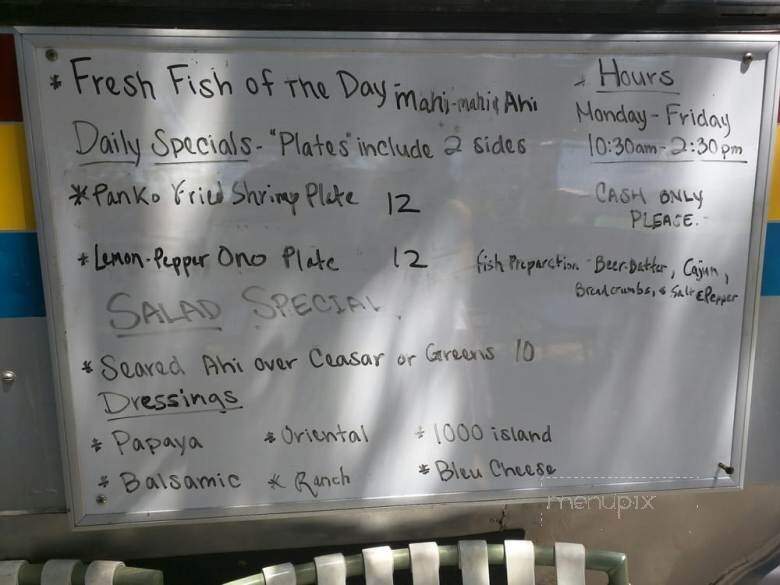 * Fresh Fish of The Day - Mahi-mahi & Ahi
Daily Specials - "Plates" include 2 sides
* Panko Fried Shrimp Plate 12
* Lemon-Pepper Ono Plate 12
Hours
Monday - Friday
10:30am - 2:30pm
CASH ONLY
PLEASE.
fish Preparation - Beer-Batter, Cajun,
Breadcrumbs, & Salt & Pepper
SALAD SPECIAL.
* Seared Ahi over Ceasar or Greens 10
Dressings
* Papaya * Oriental * 1000 island
* Balsamic * Ranch * Bleu Cheese
menupix